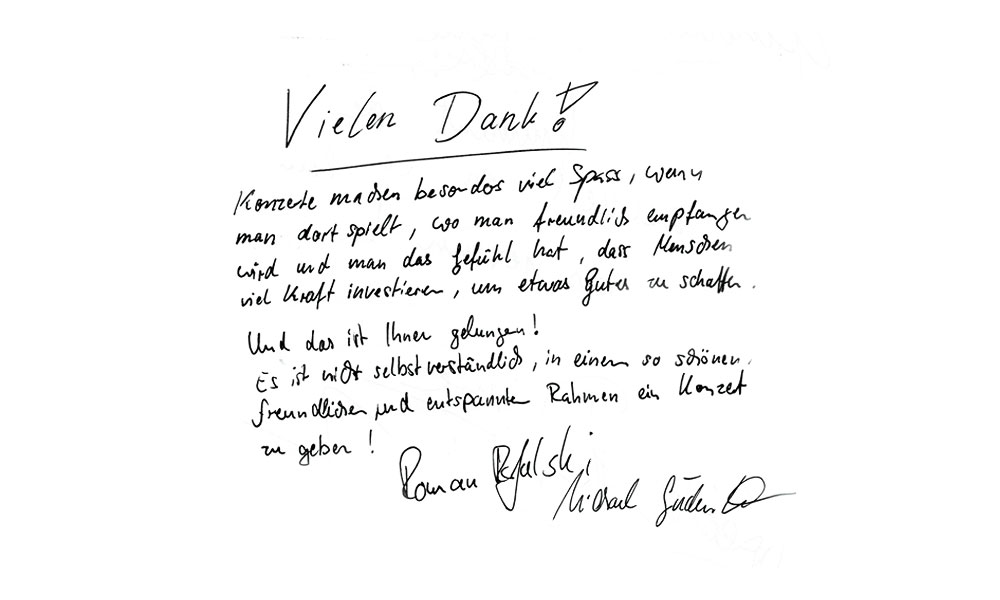 Vielen Dank!
Konzerte machen besonders viel Spass, wenn
man dort spielt, wo man freundlich empfangen
wird und man das Gefühl hat, dass Menschen
viel Kraft investieren, um etwas Gutes zu schaffen.
Und das ist Ihnen gelungen!
Es ist nicht selbstverständlich, in einem so schönen,
freundlichen und entspannten Rahmen ein Konzert
zu geben!
Roman
Michael